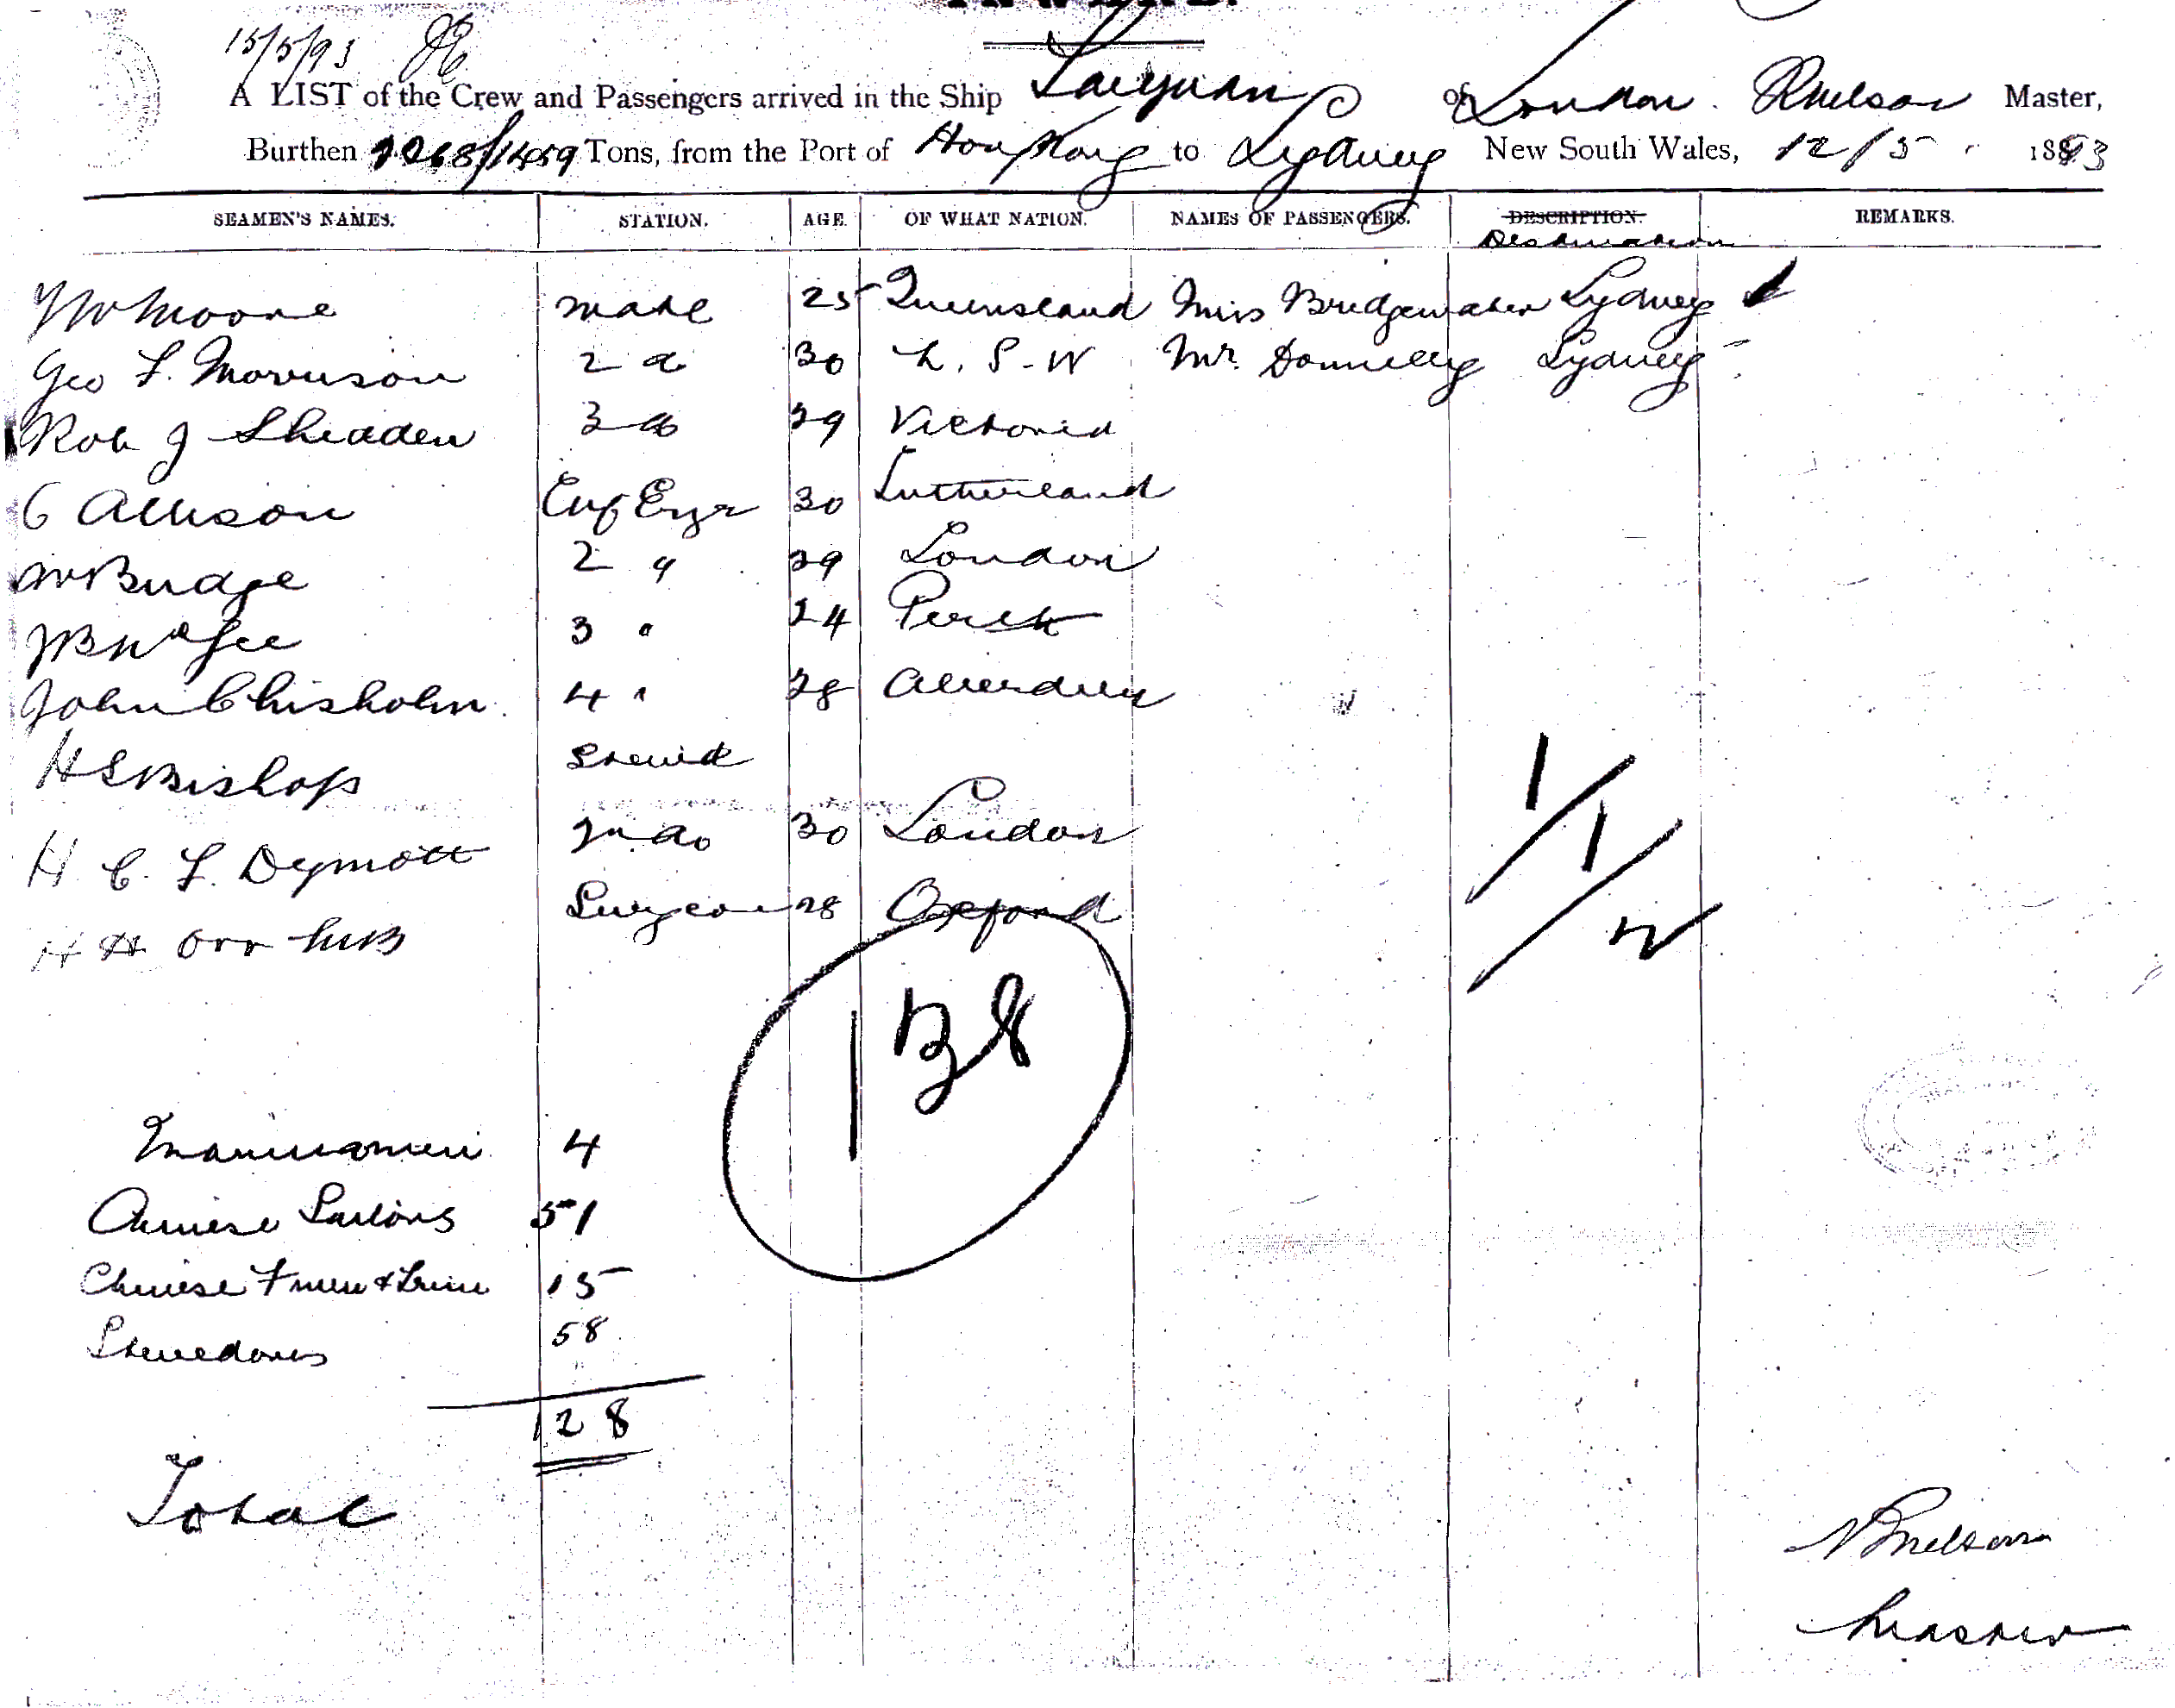 15/5/93
A LIST of the Crew and Passengers arrived in the Ship Taiyuan of London. RNelson Master,
Burthen 2268/1459 Tons, from the Port of Hong Kong to Sydney New South Wales, 12/5 1893
SEAMEN'S NAMES. STATION. AGE. OF WHAT NATION. NAMES OF PASSENGERS. DESCRIPTION. REMARKS.
Destination
Moore Mate 25 Queensland Miss Bridgewater Sydney
Geo F. Morrison 2 d 30 N. S. W Mr. Donnelly Sydney
Rob J Shedden 3 do 29 Victoria
C Allison Chf Engr 30 Sutherland
W Budge 2 " 29 London
McGee 3 " 24 Perth
John Chisholm. 4 " 28 Aberdeen
H S Bishop Stewd
H. C. F. Dymott 2n do 30 London
H H Orr MB Surgeon 28 Oxford
1/1/2
138
4
Chinese Sailors 51
Chinese Fmen & Trim 15
Stevedores 58
128
Total
Nelson
Master